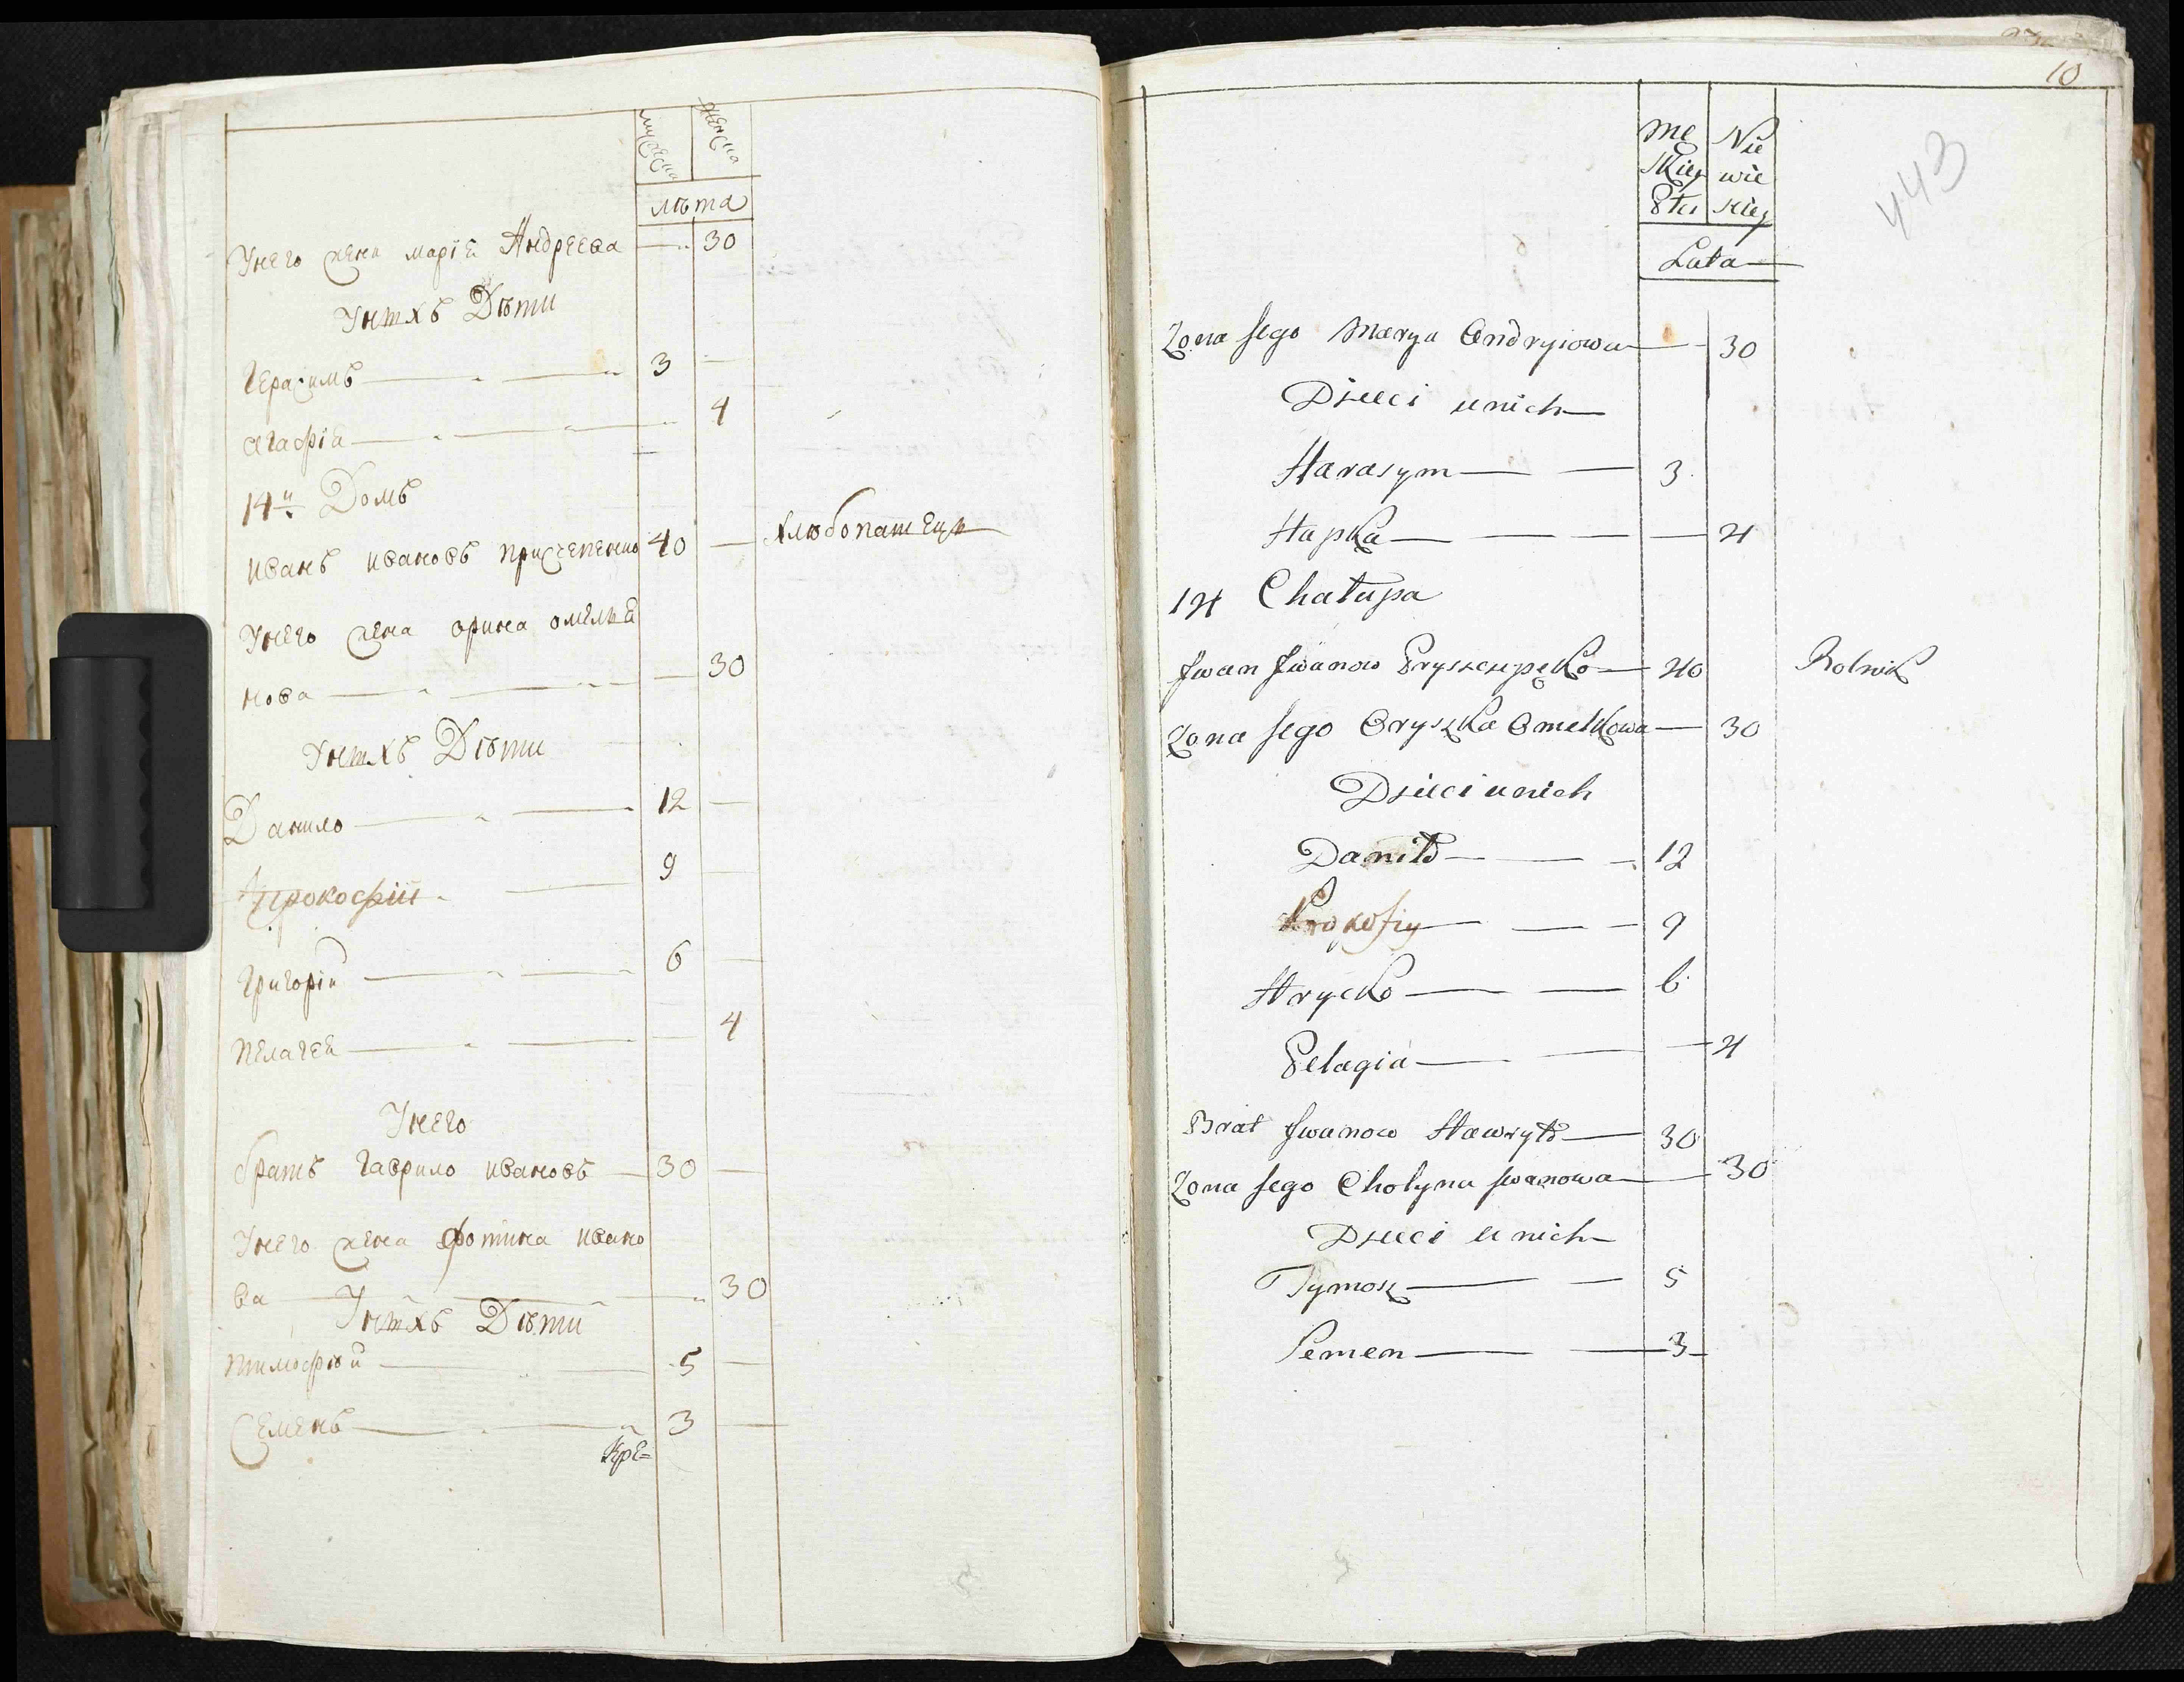 мужеска женска
лѣта
Унего жена марія Андреева — 30
Унихъ Дѣти
Герасимъ — 3 —
агафія — 4
14й Домъ
иванъ ивановъ прищепенко 40 — хлѣбопашецъ
Унего жена орина омелья
нова — 30
Унихъ Дѣти
Данило — 12 —
прокофій — 9 —
григорій — 6 —
пелагея — 4
Унего
братъ гаврило ивановъ — 30 —
Унего жена фотина ивано
ва — 30
Унихъ Дѣти
тимофѣй — 5 —
Семенъ — 3 —
Кре=
10
443
Mę Nie
skiey wie
Płci skiey
Lata
Zona Jego Marya Andryiowa — 30
Dzieci unich
Harasym — 3
Hapka — 4
14 Chałupa
Jwan Jwanow Pryszczepęko — 40 Rolnik
Zona Jego Oryszka Omelkowa — 30
Dzieci unich
Daniło — 12
Prokofiy — 9
Hrycko — 6
Pelagia — 4
Brat Jwanow Hawryło — 30
Zona Jego Chotyna Jwanowa — 30
Dzieci unich
Tymosz — 5
Semen — 3